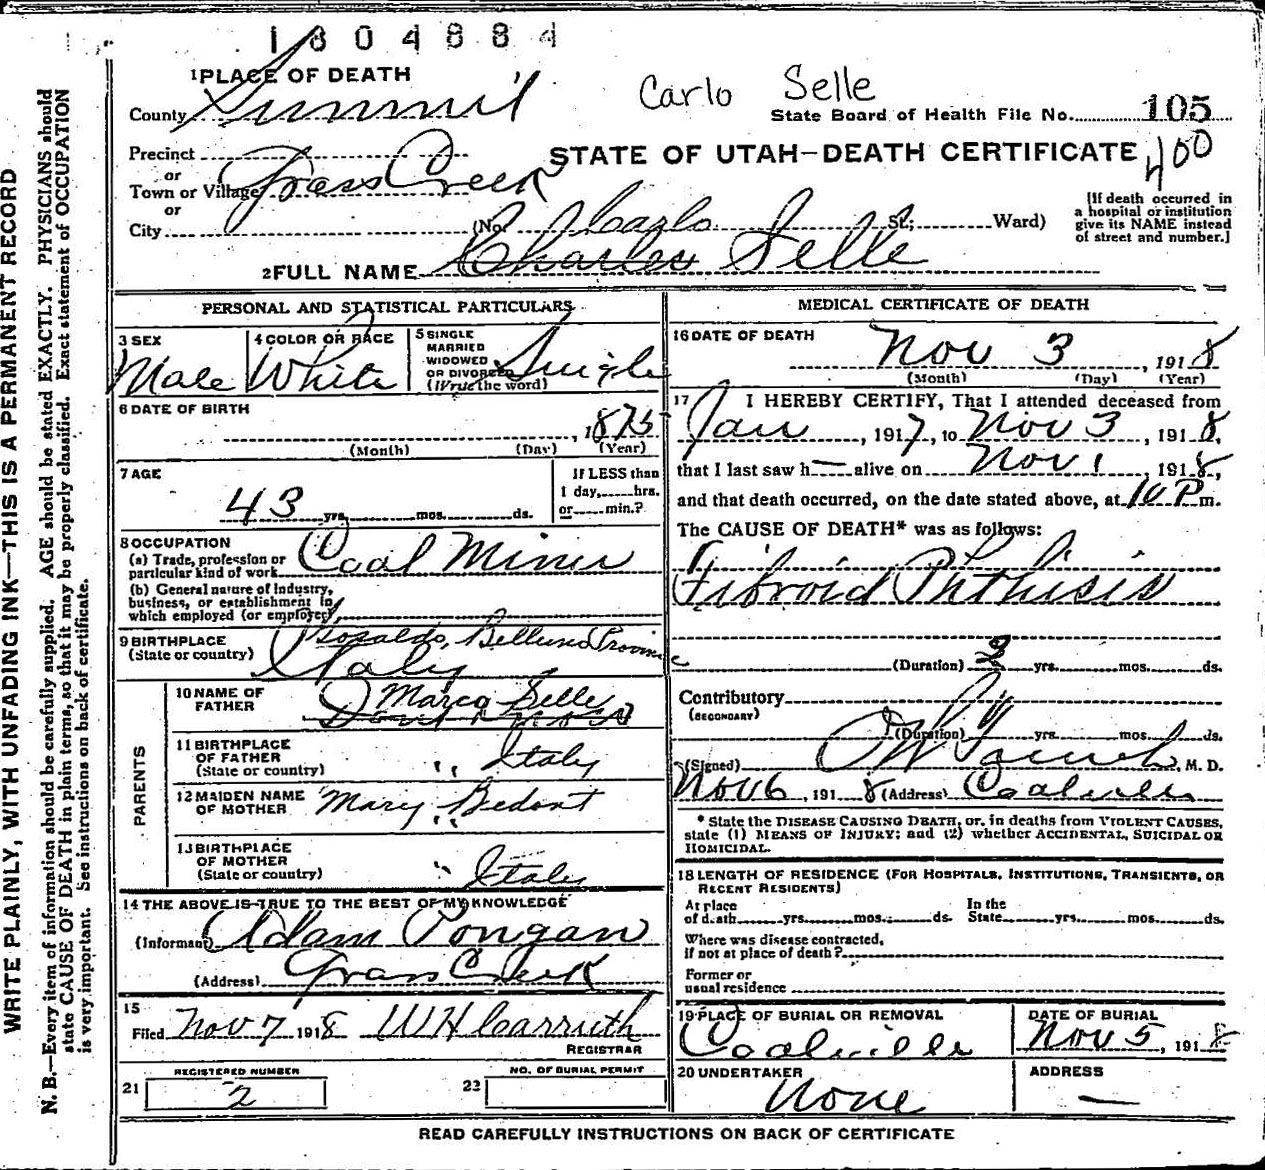 1304884
1 PLACE OF DEATH
Carlo Selle
County Summit
State Board of Health File No. 105
Precinct
or
Town or Village Grass Creek
STATE OF UTAH—DEATH CERTIFICATE 400
or
City (No. St; Ward)
[If death occurred in a hospital or institution give its NAME instead of street and number.]
Carlo
2 FULL NAME Charles Selle
PERSONAL AND STATISTICAL PARTICULARS
3 SEX Male
4 COLOR OR RACE White
5 SINGLE MARRIED WIDOWED OR DIVORCED (Write the word) Single
6 DATE OF BIRTH , 1875
(Month) (Day) (Year)
7 AGE 43 yrs. mos. ds.
If LESS than 1 day, hrs. or min.?
8 OCCUPATION
(a) Trade, profession or particular kind of work Coal Miner
(b) General nature of Industry, business, or establishment in which employed (or employer)
9 BIRTHPLACE (State or country) Bellund Province Italy
PARENTS
10 NAME OF FATHER Marco Selle
Dont Know
11 BIRTHPLACE OF FATHER (State or country) " Italy
12 MAIDEN NAME OF MOTHER Mary Bedont
"
13 BIRTHPLACE OF MOTHER (State or country) " Italy
14 THE ABOVE IS TRUE TO THE BEST OF MY KNOWLEDGE
(Informant) Adam Pongan
(Address) Grass Creek
15
Filed Nov 7 1918 WH Carruth
REGISTRAR
REGISTERED NUMBER
21 2
NO. OF BURIAL PERMIT
22
MEDICAL CERTIFICATE OF DEATH
16 DATE OF DEATH
Nov 3, 1918
(Month) (Day) (Year)
17 I HEREBY CERTIFY, That I attended deceased from
Jan, 1917, to Nov 3, 1918,
that I last saw h— alive on Nov 1, 1918,
and that death occurred, on the date stated above, at 10 P m.
The CAUSE OF DEATH* was as follows:
Fibroid Phthisis
(Duration) 3 yrs. mos. ds.
Contributory
(SECONDARY)
(Duration) yrs. mos. ds.
(Signed) M. D.
Nov 6, 1918 (Address) Coalville
* State the DISEASE CAUSING DEATH, or, in deaths from VIOLENT CAUSES, state (1) MEANS OF INJURY; and (2) whether ACCIDENTAL, SUICIDAL OR HOMICIDAL.
18 LENGTH OF RESIDENCE (FOR HOSPITALS, INSTITUTIONS, TRANSIENTS, OR RECENT RESIDENTS)
At place of death yrs. mos. ds. In the State yrs. mos. ds.
Where was disease contracted, if not at place of death?
Former or usual residence
19 PLACE OF BURIAL OR REMOVAL
Coalville
DATE OF BURIAL
Nov 5, 1918
20 UNDERTAKER
None
ADDRESS
—
READ CAREFULLY INSTRUCTIONS ON BACK OF CERTIFICATE
WRITE PLAINLY, WITH UNFADING INK—THIS IS A PERMANENT RECORD
N. B.—Every item of information should be carefully supplied. AGE should be stated EXACTLY. PHYSICIANS should
state CAUSE OF DEATH in plain terms, so that it may be properly classified. Exact statement of OCCUPATION
is very important. See instructions on back of certificate.